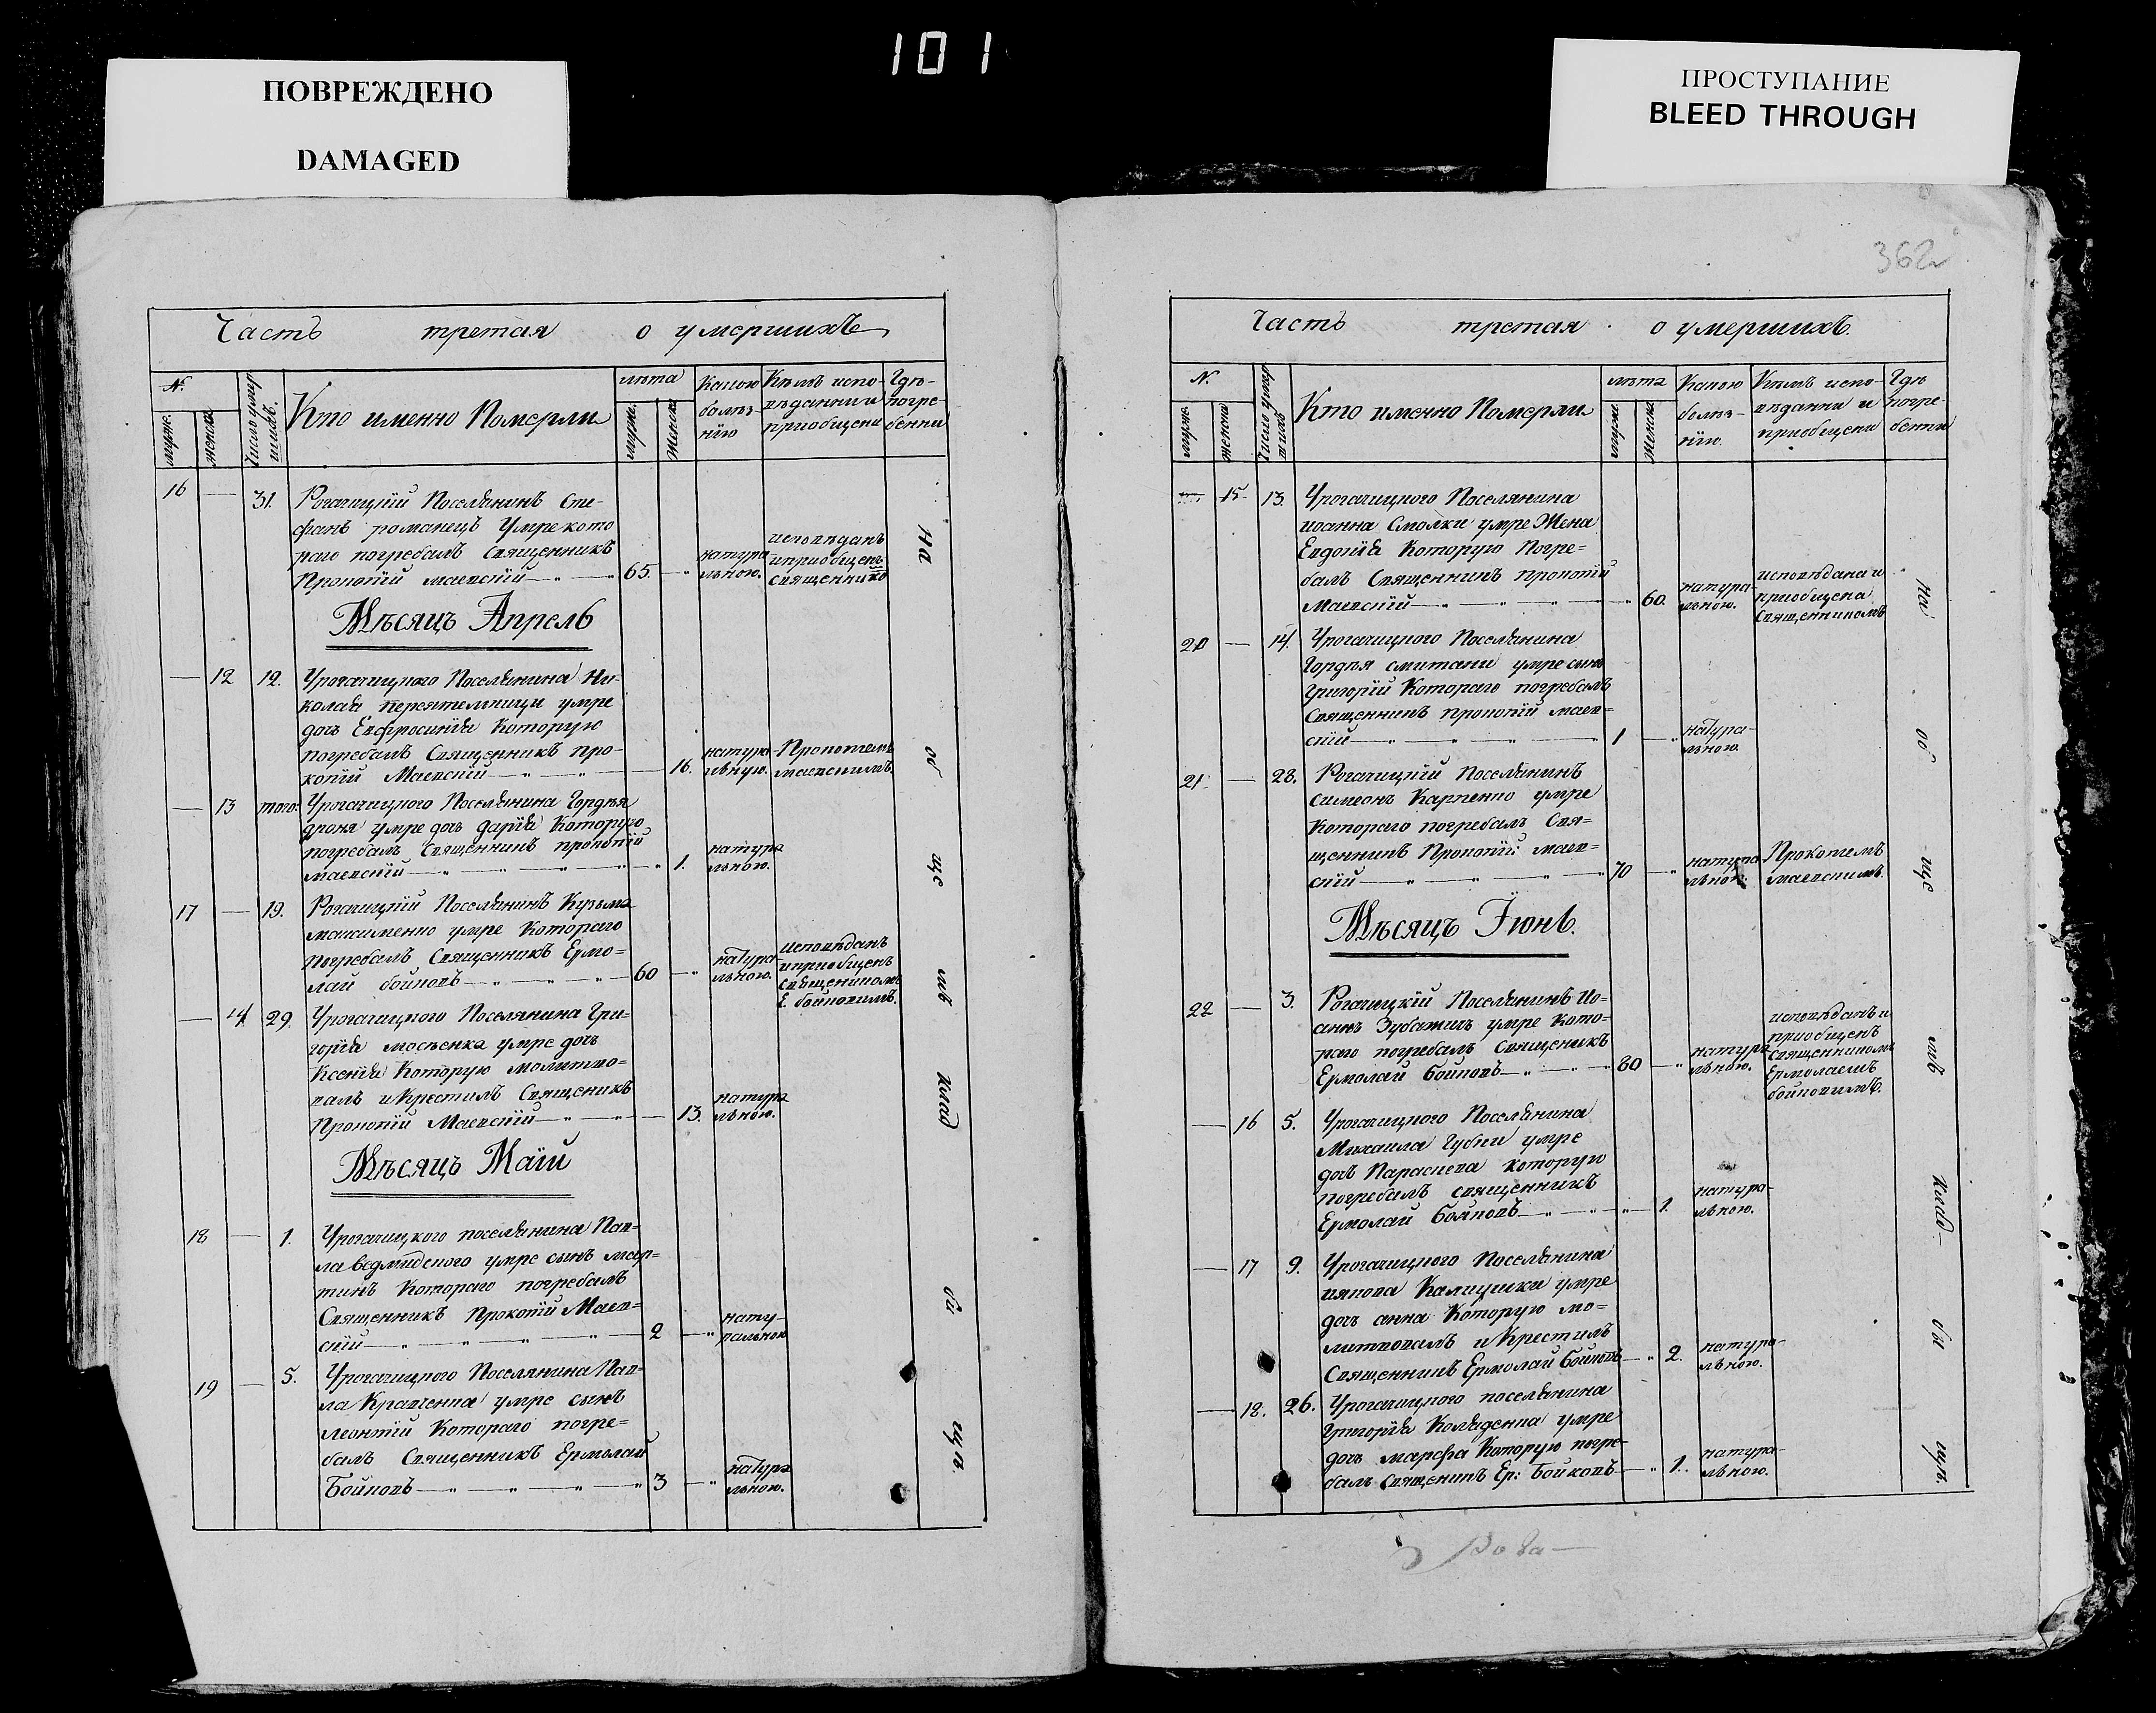 101
ПОВРЕЖДЕНО
DAMAGED
ПРОСТУПАНИЕ
BLEED THROUGH
Часть третая о умершихъ
№.
мужс.
женска
Число умер
шихъ.
Кто именно Померли
лѣта
мужс.
Женска
Какою
болѣз-
нію
Кѣмъ испо-
вѣданни и
приобщени
Гдѣ-
погре-
бенни
16 — 31. Рогачицкій Поселянинъ Сте-
фанъ романецъ Умре кото
раго погребалъ Священникъ
Прокопій маевскій — 65. — натура
льною.
исповѣданъ
и приобщенъ
священнико
на
Мѣсяцъ Апрель
— 12 12. Урогачицкого Поселянина Ни-
колая переятельници умре
дочь Евфросинія Которую
погребалъ Священникъ про-
копій Маевскій — 16. натура
льную.
Прокопіемъ
маевскимъ.
об
— 13 того: Урогачицкого Поселянина Гордѣя
дроня умре дочь дарія Которую
погребалъ Священникъ прокопій
маевскій — 1. натура
льною.
ще
17 — 19. Рогачицкій Поселянинъ Кузьма
максименко умре Котораго
погребалъ Священникъ Ермо=
лай бойковъ — 60 — натура-
льною.
исповѣданъ
и приобщенъ
священникомъ
Е. бойковимъ.
мъ
— 14 29. Урогачицкого Поселянина Гри-
горія мосѣенка умре дочь
Ксенія Которую молитво=
валъ и Крестилъ Священикъ
Прокопій Маевскій — 13. натура
льною.
клад
Мѣсяцъ Маій
18 — 1. Урогачицкого поселянина Пав=
ла ведмидского умре сынъ мар=
тинъ Котораго погребалъ
Священникъ Прокопій Маев=
скій — 2 — нату-
ральною
би
19 — 5. Урогачицкого Поселянина Пав=
ла Кравченка умре сынъ
леонтій Котораго погре=
балъ Священникъ Ермолай
Бойковъ — 3 — натура
льною.
щѣ.
362
Часть третая о умершихъ.
№.
мужс.
женска
Число умер
шихъ
Кто именно Померли
лѣта
мужс
Женска
Какою
болѣз-
нію.
Кѣмъ испо-
вѣданни и
приобщени
Гдѣ
погре-
бенни
— 15. 13. Урогачицкого Поселянина
иоанна Смолки умре Жена
Евдокія Которую Погре=
балъ Священникъ прокопій
Маевскій — 60. натура-
льною.
исповѣдана и
приобщена
Священникомъ
на
20 — 14. Урогачицкого Поселянина
Гордѣя смитани умре сынъ
Григорій Котораго погребалъ
Священникъ прокопій маев=
скій — 1 — натура-
льною.
об
21. — 28. Рогачицкій Поселянинъ
симеонъ Карпенко умре
Котораго погребалъ Свя=
щенникъ Прокопій маев=
скій — 70 — натура
льною.
Прокопіемъ
маевскимъ.
ще
Мѣсяцъ Іюнь.
22 — 3. Рогачицкій Поселянинъ Ио=
аннъ Зубатилъ умре Кото=
раго погребалъ Священикъ
Ермолай бойковъ — 80 — натура
льною.
исповѣданъ и
приобщенъ
Священникомъ
Ермолаемъ
бойковимъ.
мъ
— 16 5. Урогачицкого Поселянина
Михаила Губки умре
дочь Параскева которую
погребалъ священникъ
Ермолай Бойковъ — 1. натура-
льною.
Клад-
— 17 9. Урогачицкого Поселянина
иякова Калицики умре
дочь анна Которую мо=
литвовалъ и Крестилъ
Священникъ Ермолай Бойковъ — 2. натура-
льною.
би
— 18. 26. Урогачицкого поселянина
Григорія Коляденка умре
дочь марфа Которую погре-
балъ Священикъ Ер: Бойковъ — 1. натура-
льною.
щѣ.